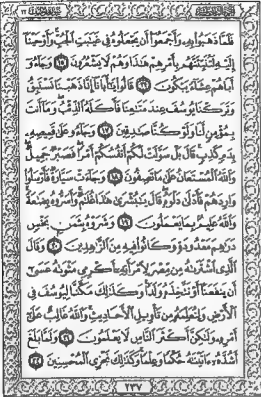 فَلَمَّا ذَهَبُوا۟ بِهِۦ وَأَجْمَعُوٓا۟ أَن يَجْعَلُوهُ فِى غَيَٰبَتِ ٱلْجُبِّ وَأَوْحَيْنَآ
إِلَيْهِ لَتُنَبِّئَنَّهُم بِأَمْرِهِمْ هَٰذَا وَهُمْ لَا يَشْعُرُونَ ١٥ وَجَآءُوٓ
أَبَاهُمْ عِشَآءً يَبْكُونَ ١٦ قَالُوا۟ يَٰٓأَبَانَآ إِنَّا ذَهَبْنَا نَسْتَبِقُ
وَتَرَكْنَا يُوسُفَ عِندَ مَتَٰعِنَا فَأَكَلَهُ ٱلذِّئْبُ وَمَآ أَنتَ
بِمُؤْمِنٍ لَّنَا وَلَوْ كُنَّا صَٰدِقِينَ ١٧ وَجَآءُو عَلَىٰ قَمِيصِهِۦ
بِدَمٍ كَذِبٍ قَالَ بَلْ سَوَّلَتْ لَكُمْ أَنفُسُكُمْ أَمْرًا فَصَبْرٌ جَمِيلٌ
وَٱللَّهُ ٱلْمُسْتَعَانُ عَلَىٰ مَا تَصِفُونَ ١٨ وَجَآءَتْ سَيَّارَةٌ فَأَرْسَلُوا۟
وَارِدَهُمْ فَأَدْلَىٰ دَلْوَهُۥ قَالَ يَٰبُشْرَىٰ هَٰذَا غُلَٰمٌ وَأَسَرُّوهُ بِضَٰعَةً
وَٱللَّهُ عَلِيمٌۢ بِمَا يَعْمَلُونَ ١٩ وَشَرَوْهُ بِثَمَنٍۭ بَخْسٍ
دَرَٰهِمَ مَعْدُودَةٍ وَكَانُوا۟ فِيهِ مِنَ ٱلزَّٰهِدِينَ ٢٠ وَقَالَ
ٱلَّذِى ٱشْتَرَىٰهُ مِن مِّصْرَ لِٱمْرَأَتِهِۦٓ أَكْرِمِى مَثْوَىٰهُ عَسَىٰٓ
أَن يَنفَعَنَآ أَوْ نَتَّخِذَهُۥ وَلَدًا وَكَذَٰلِكَ مَكَّنَّا لِيُوسُفَ فِى
ٱلْأَرْضِ وَلِنُعَلِّمَهُۥ مِن تَأْوِيلِ ٱلْأَحَادِيثِ وَٱللَّهُ غَالِبٌ عَلَىٰٓ
أَمْرِهِۦ وَلَٰكِنَّ أَكْثَرَ ٱلنَّاسِ لَا يَعْلَمُونَ ٢١ وَلَمَّا بَلَغَ
أَشُدَّهُۥٓ ءَاتَيْنَٰهُ حُكْمًا وَعِلْمًا وَكَذَٰلِكَ نَجْزِى ٱلْمُحْسِنِينَ ٢٢
٢٣٧